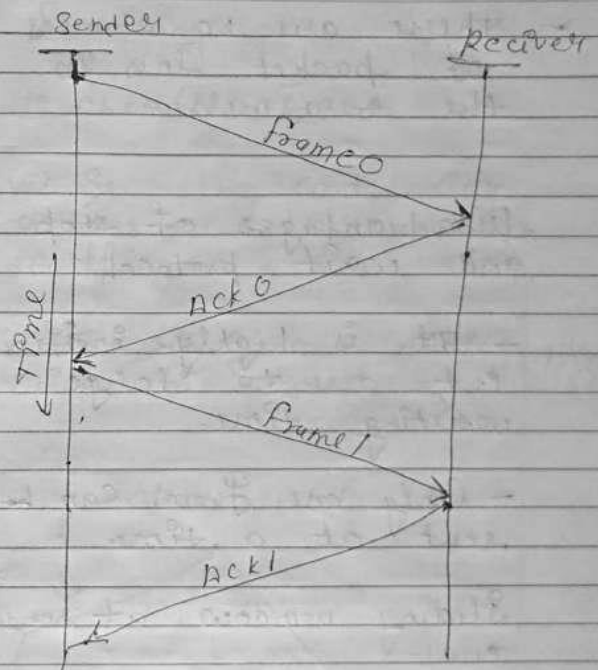 Sender
Reciver
frame0
Ack 0
Time
frame 1
Ack1